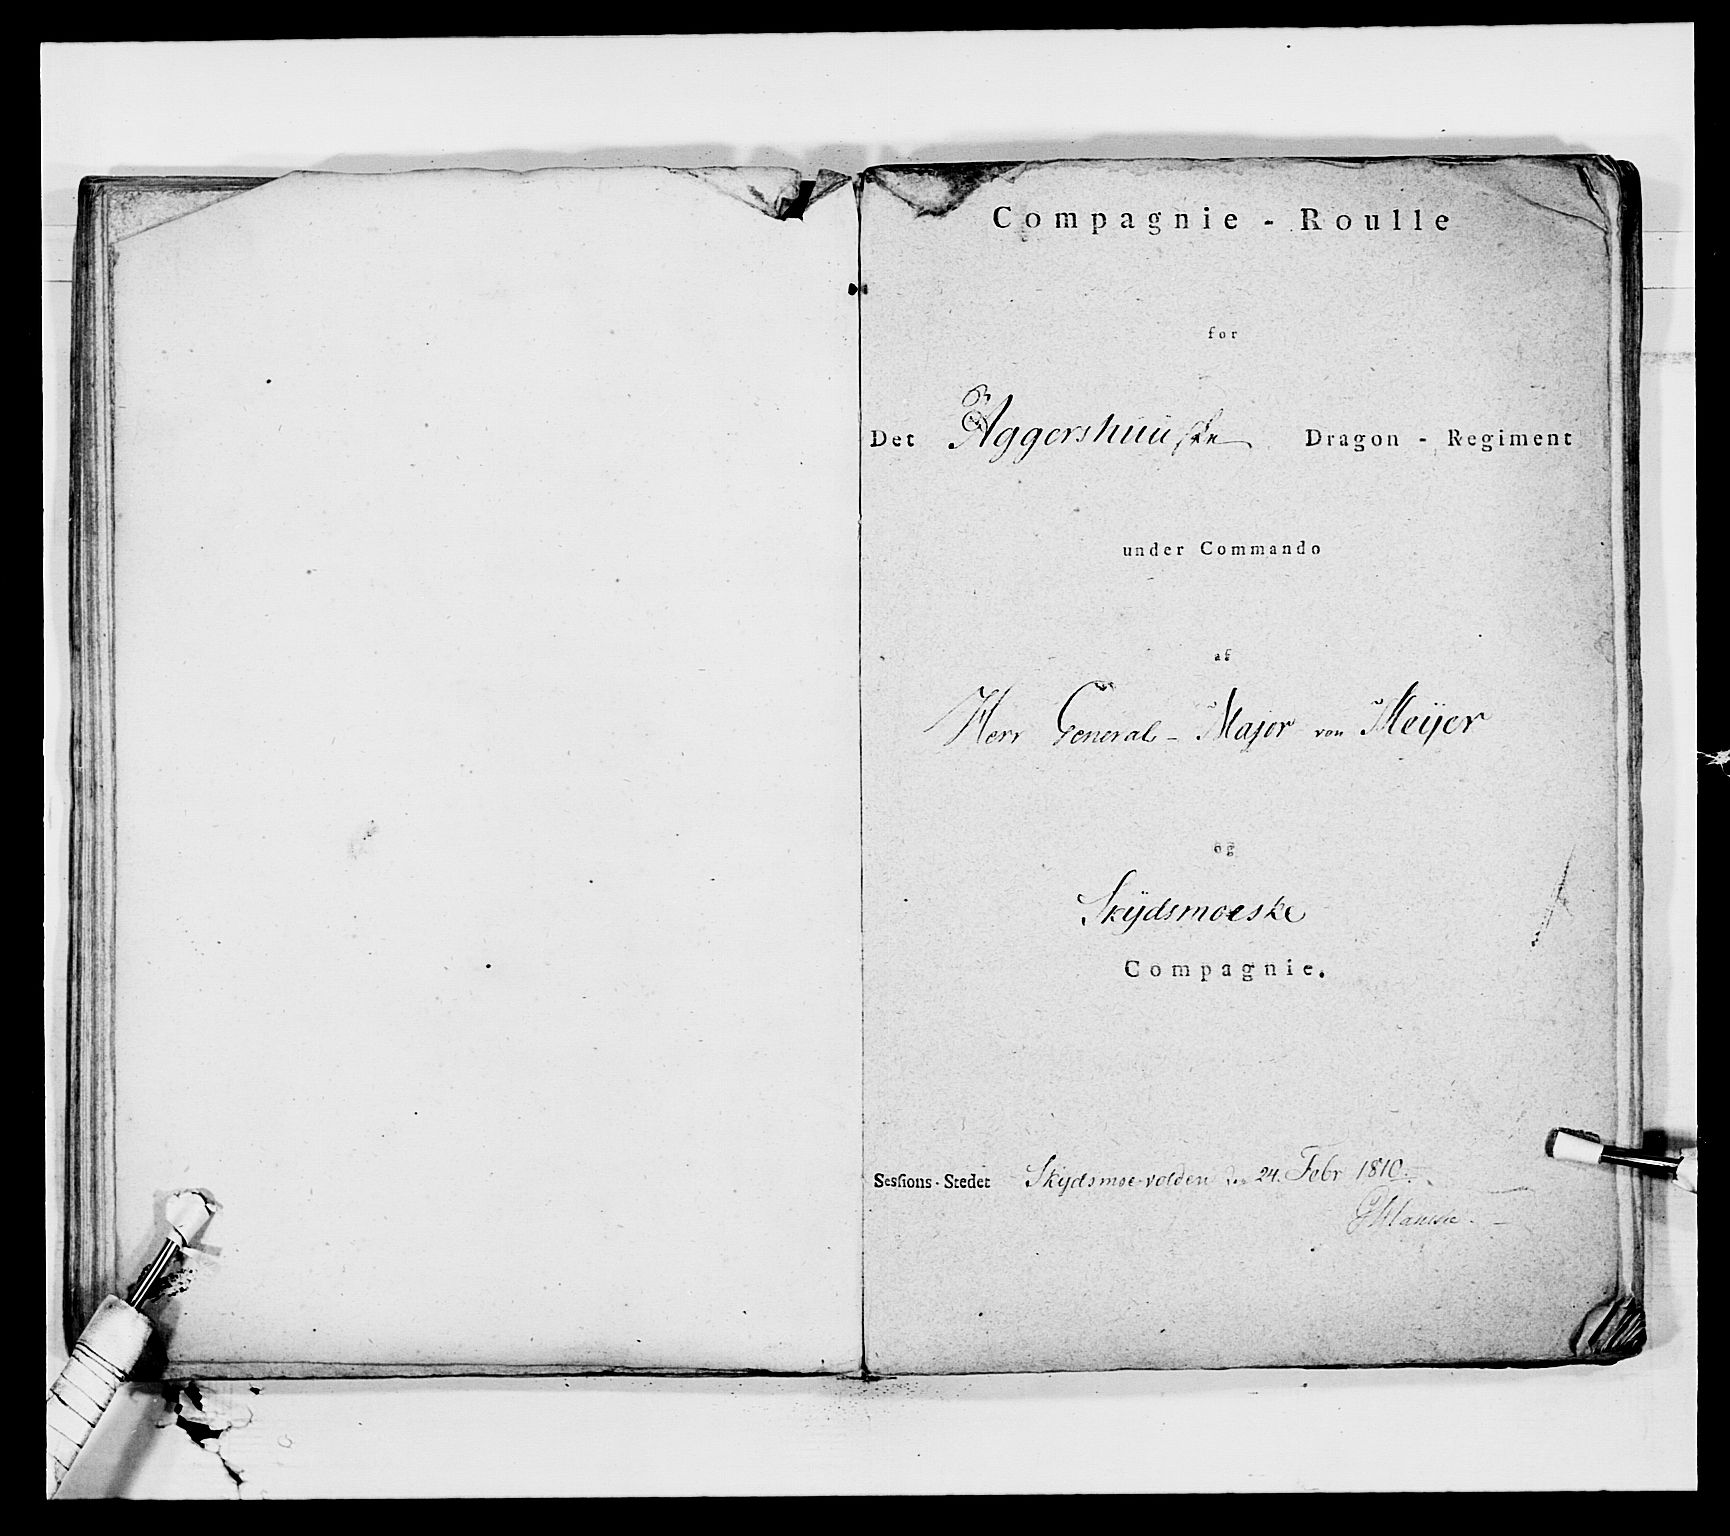 Compagnie - Roulle
for
Det Aggershuusske Dragon - Regiment
under Commando
af
Herr General - Major von Meÿer
og
Skÿdsmoeske
Compagnie.
Sessions-Stedet Skÿdsmoe-volden den 24. Febr 1810.